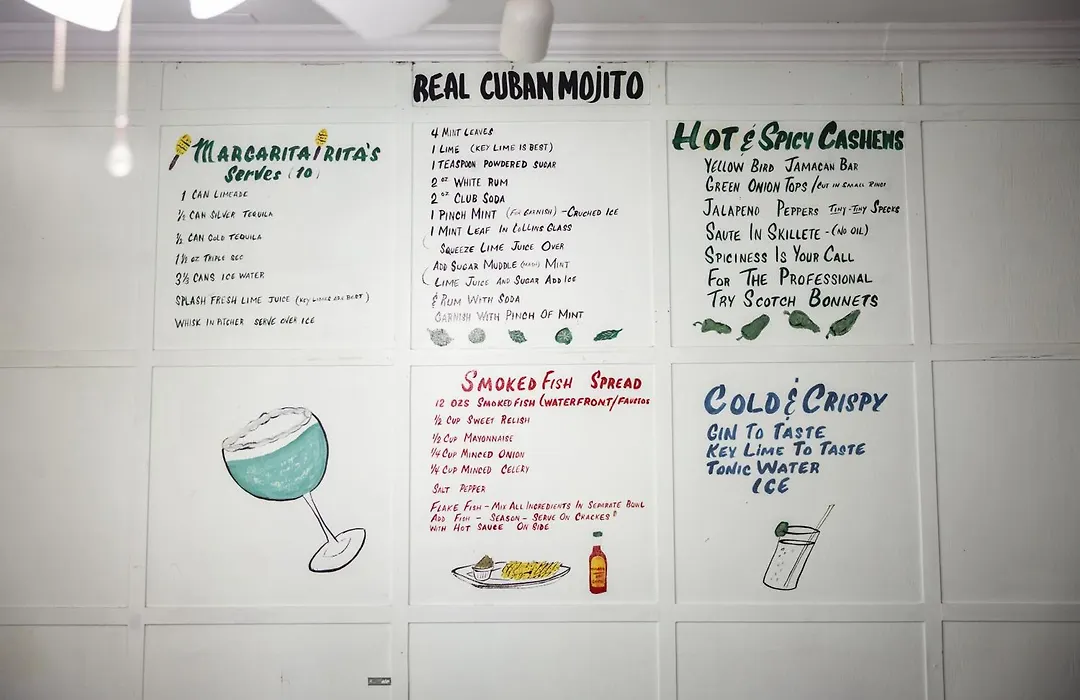 REAL CUBAN MOJITO
MARGARITA RITA'S
SERVES (10)
1 CAN LIMEADE
½ CAN SILVER TEQUILA
½ CAN GOLD TEQUILA
1½ OZ TRIPLE SEC
3½ CANS ICE WATER
SPLASH FRESH LIME JUICE (KEY LIMES ARE BEST)
WHISK IN PITCHER SERVE OVER ICE
4 MINT LEAVES
1 LIME (KEY LIME IS BEST)
1 TEASPOON POWDERED SUGAR
2 OZ WHITE RUM
2 OZ CLUB SODA
1 PINCH MINT (FOR GARNISH) - CRUCHED ICE
1 MINT LEAF IN COLLINS GLASS
SQUEEZE LIME JUICE OVER
ADD SUGAR MUDDLE (MASH) MINT
LIME JUICE AND SUGAR ADD ICE
& RUM WITH SODA
GARNISH WITH PINCH OF MINT
HOT & SPICY CASHEWS
YELLOW BIRD JAMACAN BAR
GREEN ONION TOPS / CUT IN SMALL RINGS
JALAPENO PEPPERS TINY-TINY SPECKS
SAUTE IN SKILLETE - (NO OIL)
SPICINESS IS YOUR CALL
FOR THE PROFESSIONAL
TRY SCOTCH BONNETS
SMOKED FISH SPREAD
12 OZS SMOKED FISH (WATERFRONT/FAUSTOS
½ CUP SWEET RELISH
½ CUP MAYONNAISE
¼ CUP MINCED ONION
¼ CUP MINCED CELERY
SALT PEPPER
FLAKE FISH - MIX ALL INGREDIENTS IN SEPARATE BOWL
ADD FISH - SEASON - SERVE ON CRACKES
WITH HOT SAUCE ON SIDE
COLD & CRISPY
GIN TO TASTE
KEY LIME TO TASTE
TONIC WATER
ICE